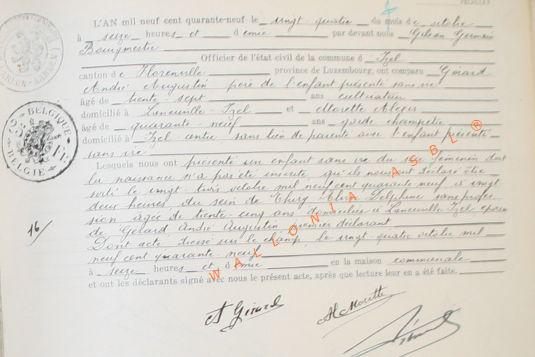 L'AN mil neuf cent quarante-neuf le vingt quatre du mois de octobre
à seize heures et demie par devant nous Gilson Germain
Bourgmestre
Officier de l'état civil de la commune d Izel
canton de Florenville province de Luxembourg, ont comparu Girard
André Augustin père de l'enfant présenté sans vie
âgé de trente sept ans cultivateur
domicilié à Laneuville-Izel et Marette
âgé de quarante-neuf ans garde champêtre
domicilié à Izel sans lien de parenté avec l'enfant présenté
sans vie
Lesquels nous ont présenté un enfant sans vie du sexe féminin dont
la naissance n'a pas été inscrite, qu'ils nous ont déclaré être
sorti le vingt-trois octobre mil neuf cent quarante neuf à vingt
deux heures du sein de Thiry Delphine sans profes
sion âgée de trente-cinq ans domiciliée à Laneuville Izel épouse
de Gérard André Augustin premier déclarant
Dont acte dressé sur le champ le vingt quatre octobre mil
neuf cent quarante-neuf
à seize heures et demie en la maison communale
et ont les déclarants signé avec nous le présent acte, après que lecture leur en a été faite.
16/
BELGIQUE
BELGIE
WALLONIA ASBL ®
A Girard
Al Marette